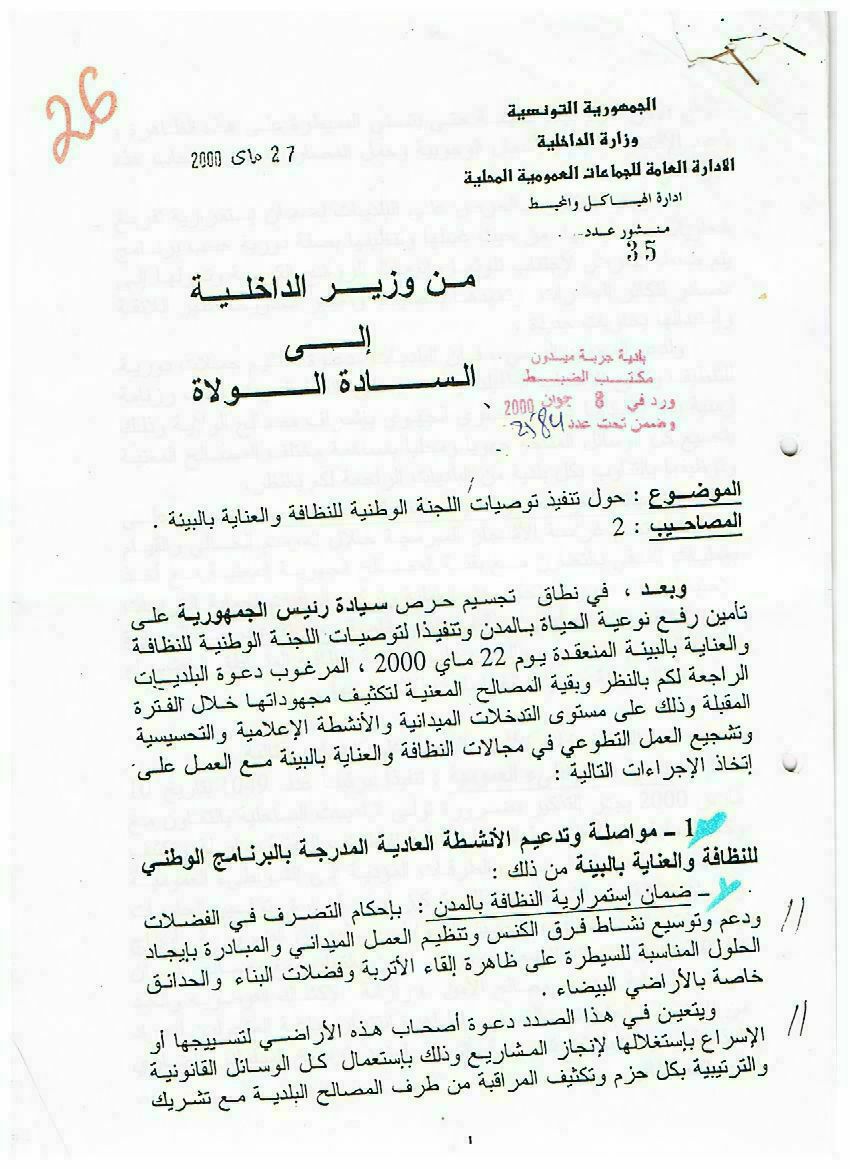 26
الجمهورية التونسية
وزارة الداخلية
27 ماي 2000
الادارة العامة للجماعات العمومية المحلية
ادارة الهياكل والمحيط
منشور عدد
35
من وزير الداخلية
إلى
السادة الولاة
بلدية جربة ميدون
مكتب الضبط
ورد في 8 جوان 2000
وضمن تحت عدد 2584
الموضوع : حول تنفيذ توصيات اللجنة الوطنية للنظافة والعناية بالبيئة .
المصاحيب : 2
وبعد ، في نطاق تجسيم حرص سيادة رئيس الجمهورية على
تأمين رفع نوعية الحياة بالمدن وتنفيذا لتوصيات اللجنة الوطنية للنظافة
والعناية بالبيئة المنعقدة يوم 22 ماي 2000 ، المرغوب دعوة البلديات
الراجعة لكم بالنظر وبقية المصالح المعنية لتكثيف مجهوداتها خلال الفترة
المقبلة وذلك على مستوى التدخلات الميدانية والأنشطة الإعلامية والتحسيسية
وتشجيع العمل التطوعي في مجالات النظافة والعناية بالبيئة مع العمل على
إتخاذ الإجراءات التالية :
1 - مواصلة وتدعيم الأنشطة العادية المدرجة بالبرنامج الوطني
للنظافة والعناية بالبيئة من ذلك :
- ضمان إستمرارية النظافة بالمدن : بإحكام التصرف في الفضلات
ودعم وتوسيع نشاط فرق الكنس وتنظيم العمل الميداني والمبادرة بإيجاد
الحلول المناسبة للسيطرة على ظاهرة إلقاء الأتربة وفضلات البناء والحدائق
خاصة بالأراضي البيضاء .
ويتعين في هذا الصدد دعوة أصحاب هذه الأراضي لتسييجها أو
الإسراع بإستغلالها لإنجاز المشاريع وذلك بإستعمال كل الوسائل القانونية
والترتيبية بكل حزم وتكثيف المراقبة من طرف المصالح البلدية مع تشريك
1